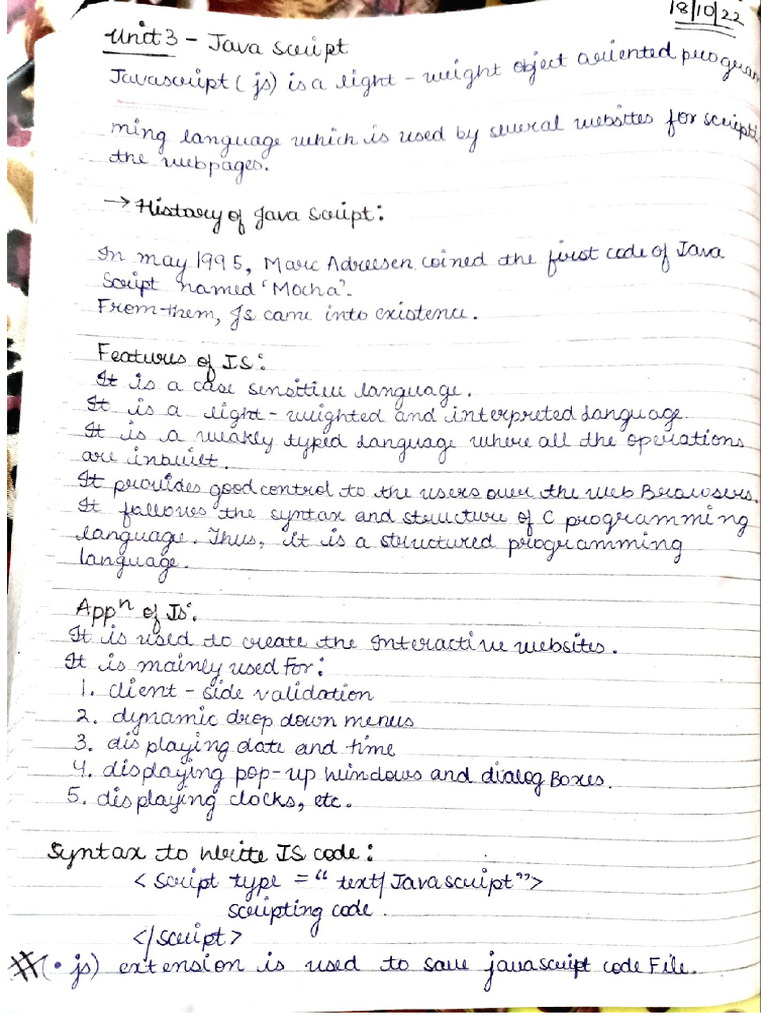 18/10/22
Unit 3 - Java Script
Javascript (js) is a light - weight object oriented program
ming language which is used by several websites for scripti
the webpages.
→ History of Java Script:
In may 1995, Marc Adreesen coined the first code of Java
Script named 'Mocha'.
From them, Js came into existence.
Features of JS:
It is a case sensitive language.
It is a light - weighted and interpreted language.
It is a weakly typed language where all the operations
are inbuilt.
It provides good control to the users over the web Browsers.
It follows the syntax and structure of C programming
language. Thus, it is a structured programming
language.
Appⁿ of Js:
It is used to create the Interactive websites.
It is mainly used for:
1. client - side validation
2. dynamic drop down menus
3. displaying date and time
4. displaying pop-up windows and dialog Boxes.
5. displaying clocks, etc.
Syntax to write JS code:
< Script type = "text/Javascript">
scripting code.
</script>
# (.js) extension is used to save javascript code File.